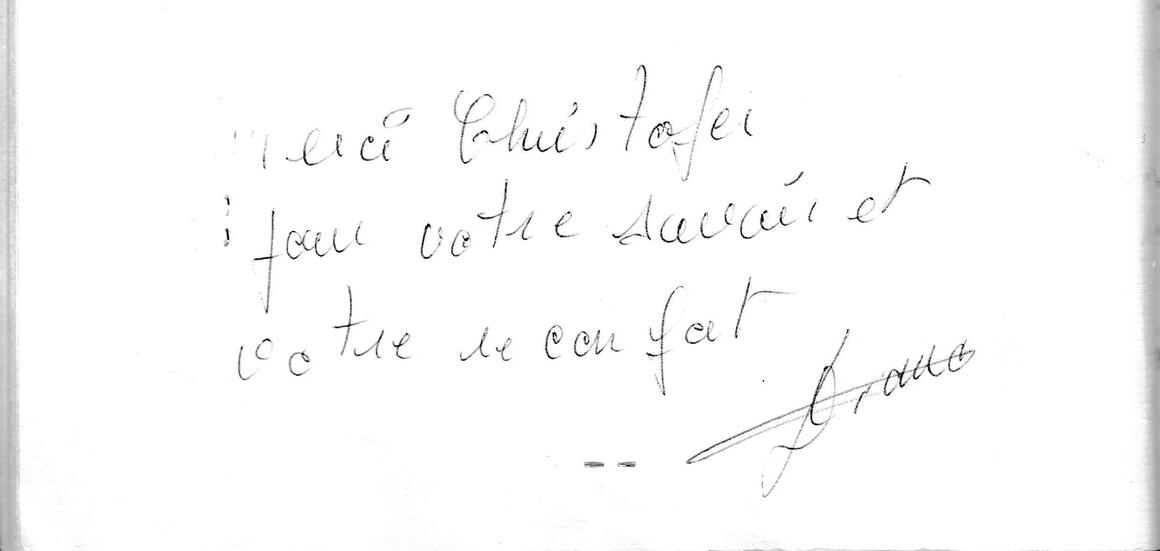 Merci Christofer
pour votre savoir et
votre reconfort
Diana